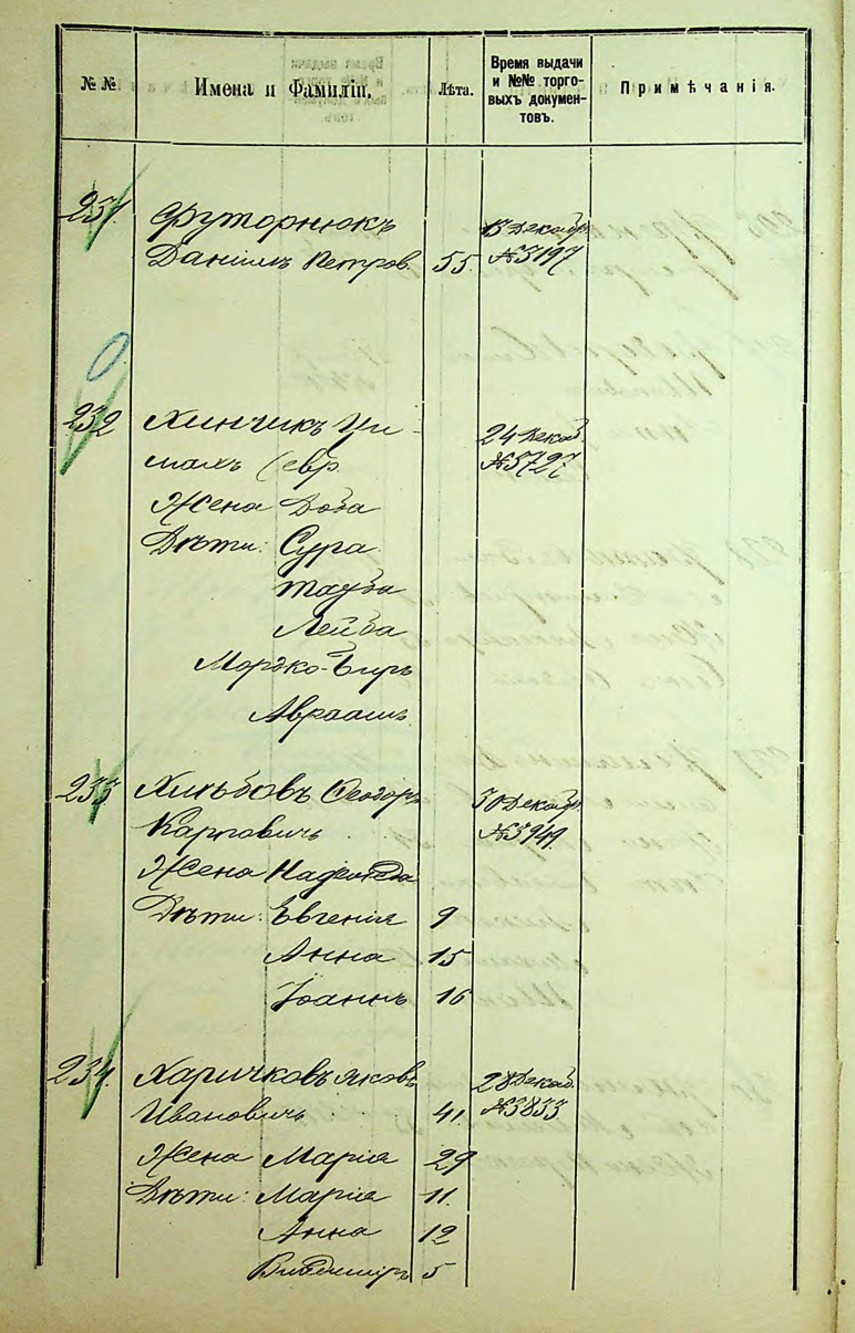 №№ Имена и Фамиліи. Лѣта. Время выдачи и №№ торговыхъ документовъ. Примѣчанія.
231. Футорнюкъ 13 Декабр.
Даніилъ Петров. 55. №3197
232 Хинчикъ Ци- 24 Декаб.
махъ (евр. №3727
Жена Доба
Дѣти: Сура
Тауба
Лейба
Мордко-Беръ
Авраамъ
233 Хлѣбовъ Феодоръ 30 Декабр.
Карповичъ №3949
Жена Надежда
Дѣти: Евгенія 9
Анна 15
Іоаннъ 16
234. Харичковъ Яковъ 28 Декаб.
Ивановичъ 41. №3833
Жена Марія 29
Дѣти: Марія 11.
Анна 12
Владиміръ 5